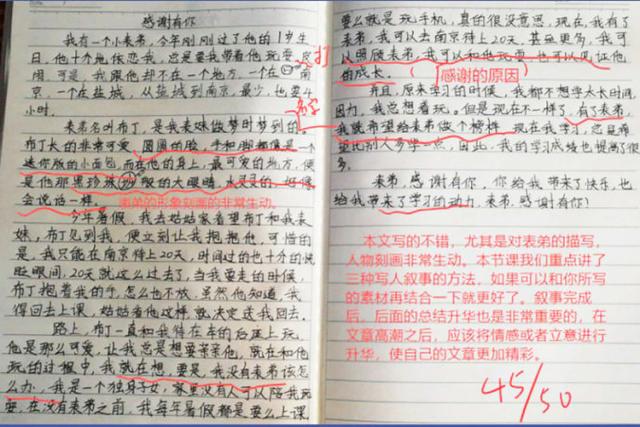 感谢有你
我有一个小表弟,今年刚刚过了他的1岁生
日,他十个地依恋我,总是要我带着他玩耍,
闹,可是,我跟他却不在一个地方,一个在
京,一个在盐城,从盐城到南京,最少,也要4
小时。
表弟名叫布丁,是我表妹做梦时梦到的。
布丁长的非常可爱,圆圆的脸,手和脚都像是一个
迷你版的小面包,而在他的身上,最可爱的地方,便
是他那黑珍珠般的大眼睛,水灵灵的,好像
会说话一样。
表弟的形象刻画的非常生动。
今年暑假,我去姑姑家看望布丁和我表
妹,布丁见到我,便立刻让我抱抱他,可惜的
是,我只能在南京待上20天,时间过的也十分的快
眨眼间,20天就这么过去了,当我要走的时候,
布丁抱着我的手,怎么也不放,虽然他知道,我
得回去上课,姑姑看他这样,就决定送我回去。
路上,布丁一直和我伴在车的后座上玩,
他是那么可爱,让我总是想要亲亲他,就在和他
玩的过程中,我就在想,要是,我没有表弟该怎
么办,我是一个独身子女,家里没有人可以陪我玩
耍,在没有表弟之前,我每年暑假都是要么上课
要么就是玩手机,真的很没意思,现在,我有了
表弟,我可以去南京待上20天,甚至更多,我可
以照顾表弟,我可以和他玩耍,也可以见证他
的成长。
感谢的原因
并且,原来学习的时候,我都不想学太长时间
因为,我总想着玩。但是现在不一样了,有了表弟,
我就希望给表弟做个榜样,现在我学习,总是希
望比别人多学一点,由此,我的学习成绩也提高了很
多。
表弟,感谢有你,你给我带来了快乐,也
给我带来了学习的动力,表弟,感谢有你!
本文写的不错,尤其是对表弟的描写,
人物刻画非常生动。本节课我们重点讲了
三种写人叙事的方法,如果可以和你所写
的素材再结合一下就更好了。叙事完成
后。后面的总结升华也是非常重要的,在
文章高潮之后,应该将情感或者立意进行
升华,使自己的文章更加精彩。
45/50